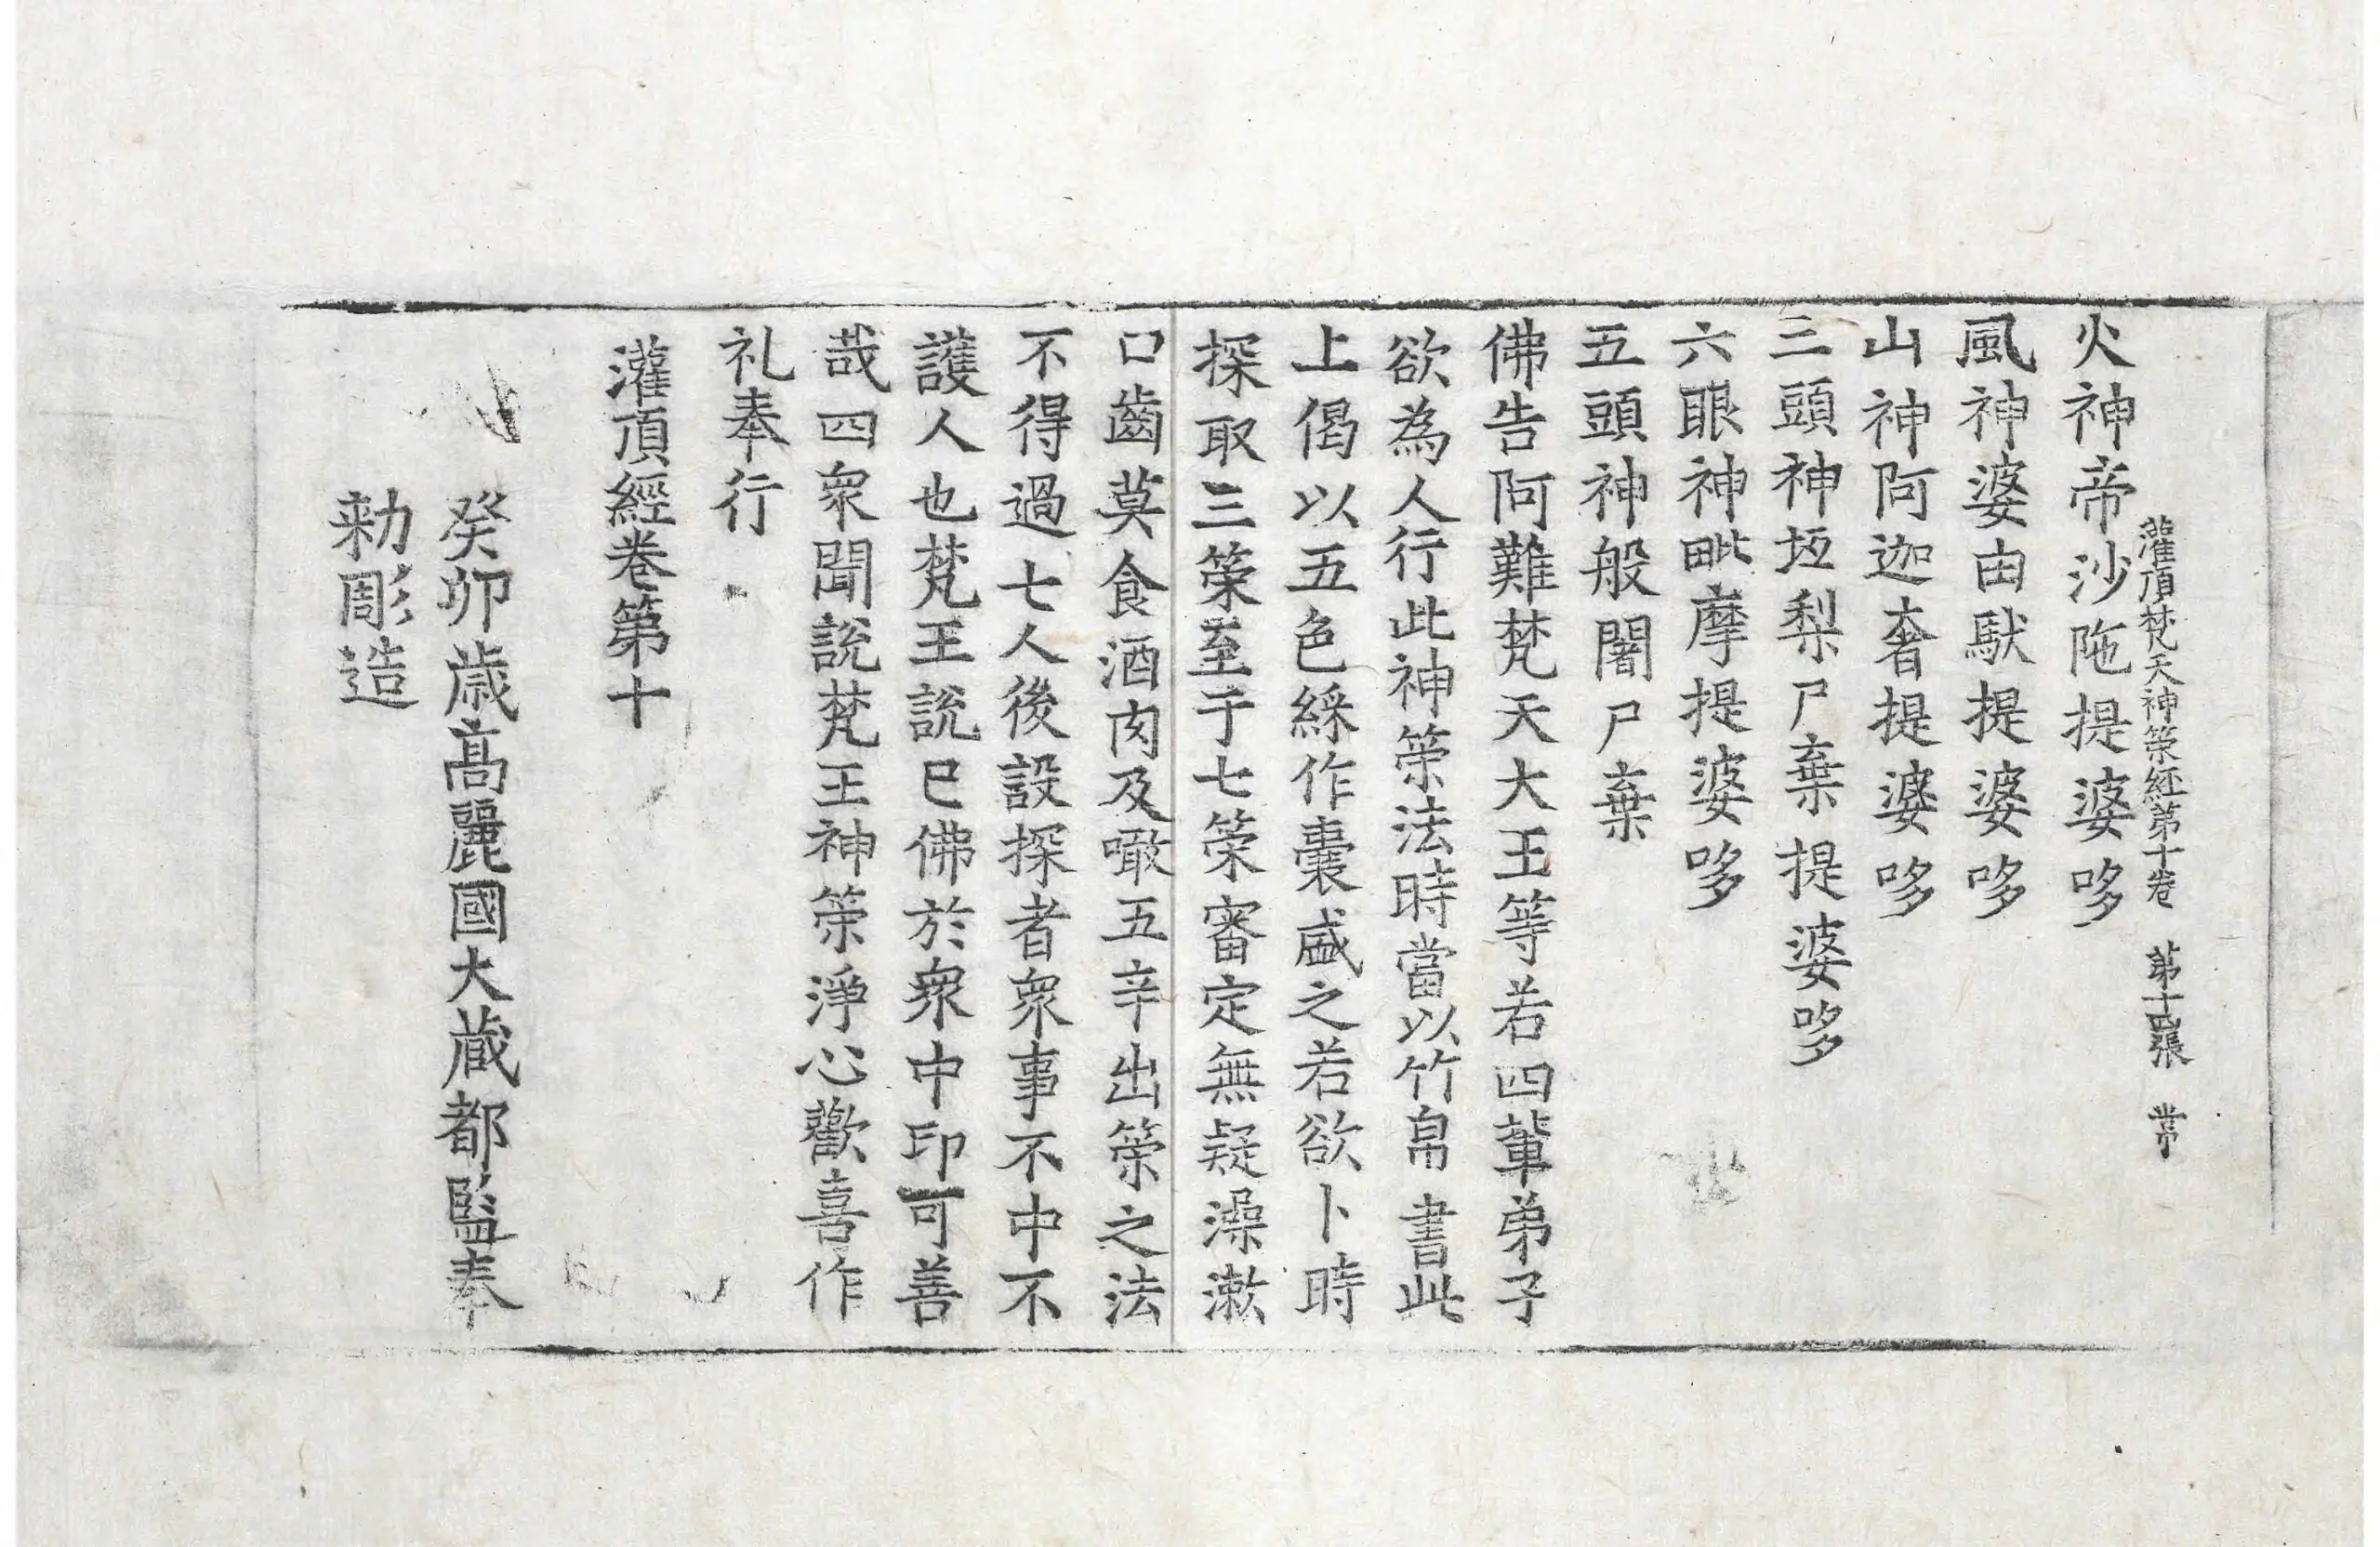 灌頂梵天神策経第十卷 第十四張 常
火神帝沙陁提婆哆
風神婆由馱提婆哆
山神阿迦奢提婆哆
三頭神𢌞梨尸棄提婆哆
六眼神毗摩提婆哆
五頭神般闍尸棄
佛告阿難梵天大王等若四軰弟子
欲為人行此神策法時當以竹帛書此
上偈以五色綵作囊盛之若欲卜時
探取三策至于七策審定無疑澡漱
口齒莫食酒肉及噉五辛出策之法
不得過七人後設探者衆事不中不
護人也梵王說已佛於衆中印可善
哉四衆聞說梵王神策淨心歡喜作
礼奉行
灌頂經卷第十
癸卯歲高麗國大藏都監奉
勑彫造